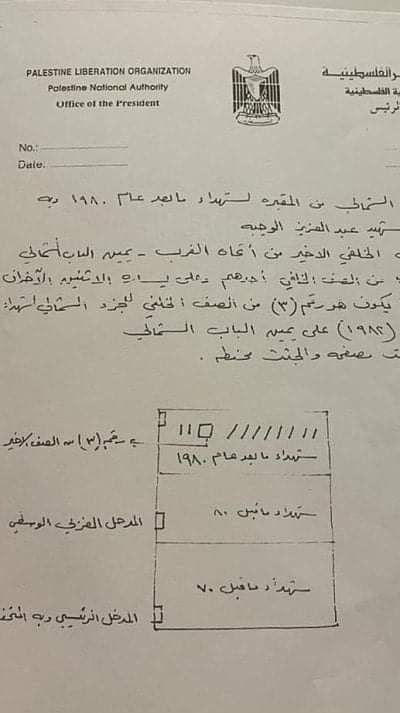 PALESTINE LIBERATION ORGANIZATION
Palestine National Authority
Office of the President
ر الفلسطينية
ية الفلسطينية
الرئيس
No.:
Date.
الشمالي من المقبره لشهداء ما بعد عام ١٩٨٠ وبه
شهيد عبد العزيز الوجيه
الخلفي الاخير من اتجاه الغرب - يمين الباب الشمالي
من الصف الخلفي وعلى يساره الاثنين الآخران
يكون هو رقم (٣) من الصف الخلفي للجزء الشمالي لشهداء
(١٩٨٢) على يمين الباب الشمالي
والجثث محنطه .
رقم (٣) من الصف الاخير
شهداء ما بعد عام ١٩٨٠
المدخل الغربي الوسطي
شهداء ما قبل ٨٠
شهداء ما قبل ٧٠
المدخل الرئيسي وبه